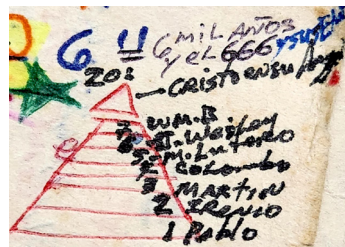 6 U 6 MIL AÑOS
y el 666 y sus
20:
CRISTO EN SU
7 WM.B
6 J. Wesley
5 M. LUTERO
4 COLOMBO
3 MARTIN
2 IRENIO
1 PABLO